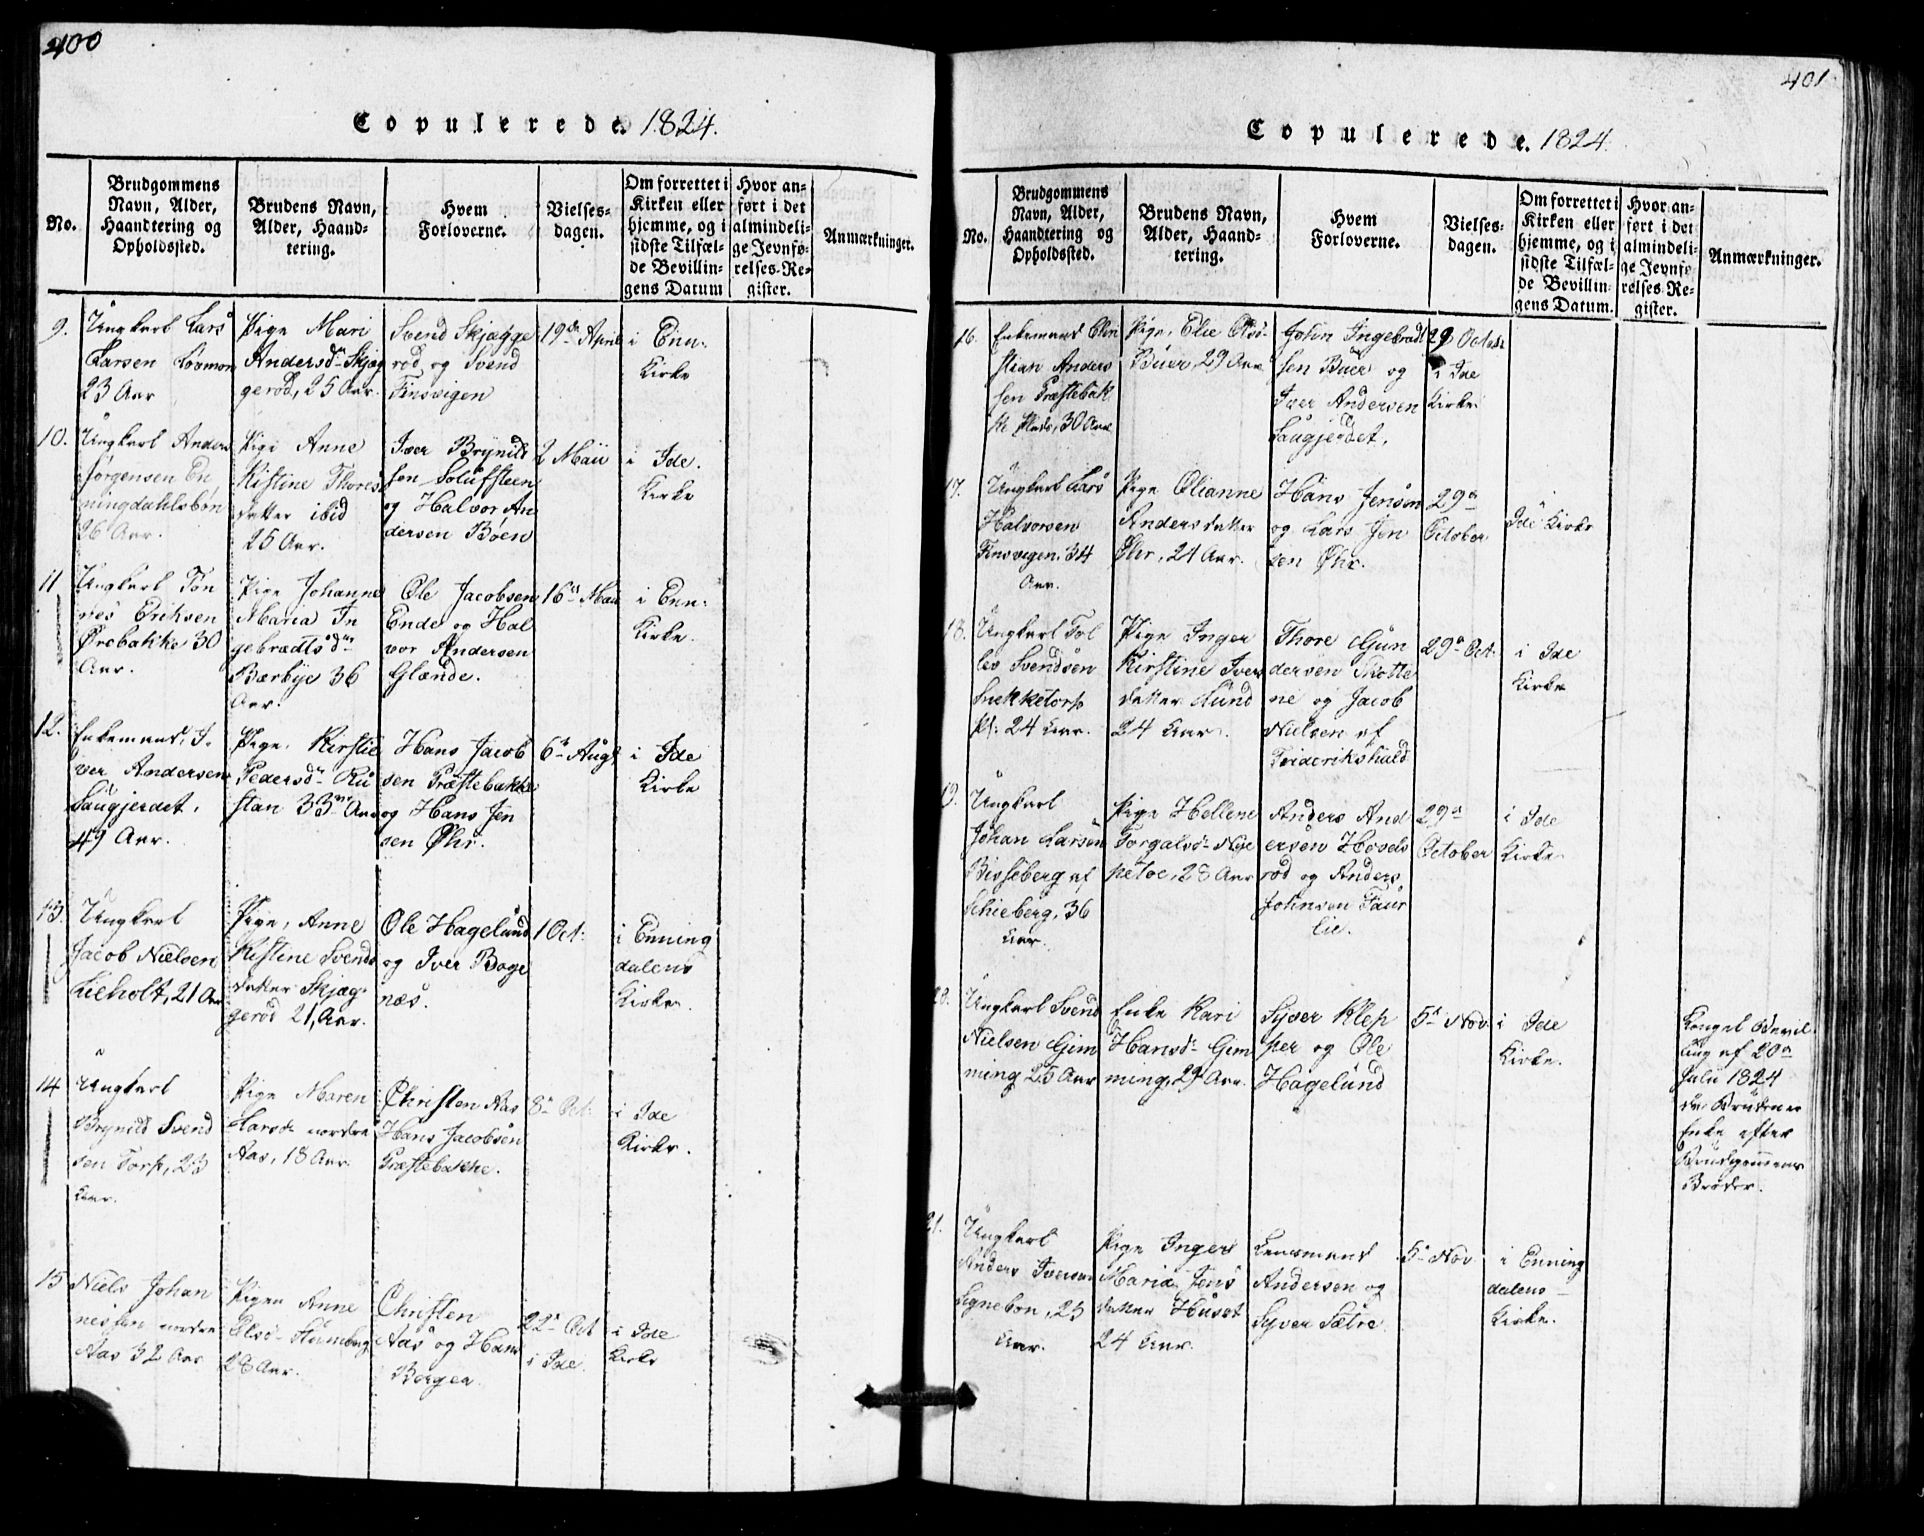 400
Copulerede. 1824.
No.
Brudgommens
Navn, Alder,
Haandtering og
Opholdssted.
Brudens Navn,
Alder, Haand=
tering.
Hvem
Forloverne.
Vielses=
dagen.
Om forrettet i
Kirken eller
hjemme, og i
sidste Tilfæl=
de Bevillin=
gens Datum
Hvor an=
ført i det
almindeli=
ge Jevnfø=
relses-Re=
gister.
Anmærkninger.
9.
Ungkarl Lars
Larsen
23 Aar
Pige Mari
Andersd. Skjæg
gerød, 25 Aar.
Svend Skjægge
rød og Svend
Finsvigen
19de April
i Enn:
Kirke
10.
Ungkarl Anders
Jørgensen En
ningdahlsbøn
26 Aar.
Pige Anne
Kistine Thores
datter ibid
25 Aar.
Iver Brynild
sen Solufsteen
og Halvor An
dersen Bøen
2 Maii
i Ide.
Kirke
11
Ungkarl Tøn
nes Eriksen
Ørebakke 30
Aar.
Pige Johanne
Maria In
gebrædtsdr
Bærbye 36
Aar.
Ole Jacobsen
Ende og Hal
vor Andersen
Glænde.
16de Maii
i Enn:
Kirke.
12.
Enkemand, I-
ver Andersen
Saugjerdet,
49 Aar.
Pige, Kirstie
Pedersdr Ru
stan 33 Aar
Hans Jacob
sen Præstebakke
og Hans Jen
sen Øhr.
6te Augt
i Ide
Kirke
13.
Ungkarl
Jacob Nielsen
Lieholt, 21 Aar
Pige, Anne
Kistine Svends
datter Skjæg
gerød 21, Aar.
Ole Hagelund
og Iver Bage
næs.
1 Oct:
i Enning
dalens
Kirke.
14
Ungkarl
Brynild Svend
sen Torp, 23
Aar.
Pige Maren
Larsdr nordre
Aas, 18 Aar.
Christen Aas
Hans Jacobsen
Præstebakke.
8de Oct:
i Ide
Kirke.
15
Niels Johan
nessen nordre
Aas 32 Aar
Pigen Anne
Olsdr
28 Aar.
Christen
Aas og Hans
Borgen.
22de Oct
i Ide.
i Ide
Kirke
401
Copulerede. 1824.
No.
Brudgommens
Navn, Alder,
Haandtering og
Opholdssted.
Brudens Navn,
Alder, Haand=
tering.
Hvem
Forloverne.
Vielses=
dagen.
Om forrettet i
Kirken eller
hjemme, og i
sidste Tilfæl=
de Bevillin=
gens Datum.
Hvor an=
ført i det
almindeli=
ge Jevnfø=
relses-Re=
gister.
Anmærkninger.
16.
Enkemand Chri
stian Anders
sen Præstebak
ke Plads, 30 Aar
Pige, Elie Olsdr
Buer, 29 Aar
John Ingebradt
sen Buer og
Iver Andersen
Saugjerdet.
29 October
i Ide
Kirke
17.
Ungkarl Lars
Halvorsen
Finsvigen. 34
Aar.
Pige Olianne
Andersdatter
Øhr, 21 Aar.
Hans Jensen
og Lars Jen
sen Øhr.
29de
October
Ide Kirke
18.
Ungkarl Tol
lev Svendsen
Lukketorp
Pl: 24 Aar.
Pige Inger
Kirstine Ivers
datter Lund
24 Aar.
Thore Gun
dersen Skotte
ne og Jacob
Nielsen af
Friderikshald
29de Oct.
i Ide
Kirke
19.
Ungkarl
Johan Larsen
Bisseberg af
Schieberg, 36
Aar.
Pige Hellene
Torgalsdr Nye
, 28 Aar
Anders And
ersen Hovds
rød og Anders
Johnsen Taur
lie.
29de
October
i Ide
Kirke
20.
Ungkarl Svend
Nielsen Gim
ming 25 Aar
Enke Kari
Hansdr Gim
ming, 29 Aar.
Syver Klep
per og Ole
Hagelund
5te Nov.
i Ide
Kirke.
Kongel Bevil
ling af 20de
Julii 1824
da Bruden er
Enke efter
Brudgommens
Broder.
21.
Ungkarl
Anders Iversen
Lynebøn, 23
Aar.
Pige Inger
Maria Jens
datter Huset
24 Aar.
Lensmand
Andersen og
Syver Sætre
5te Nov
i Enning
dalens
Kirke.